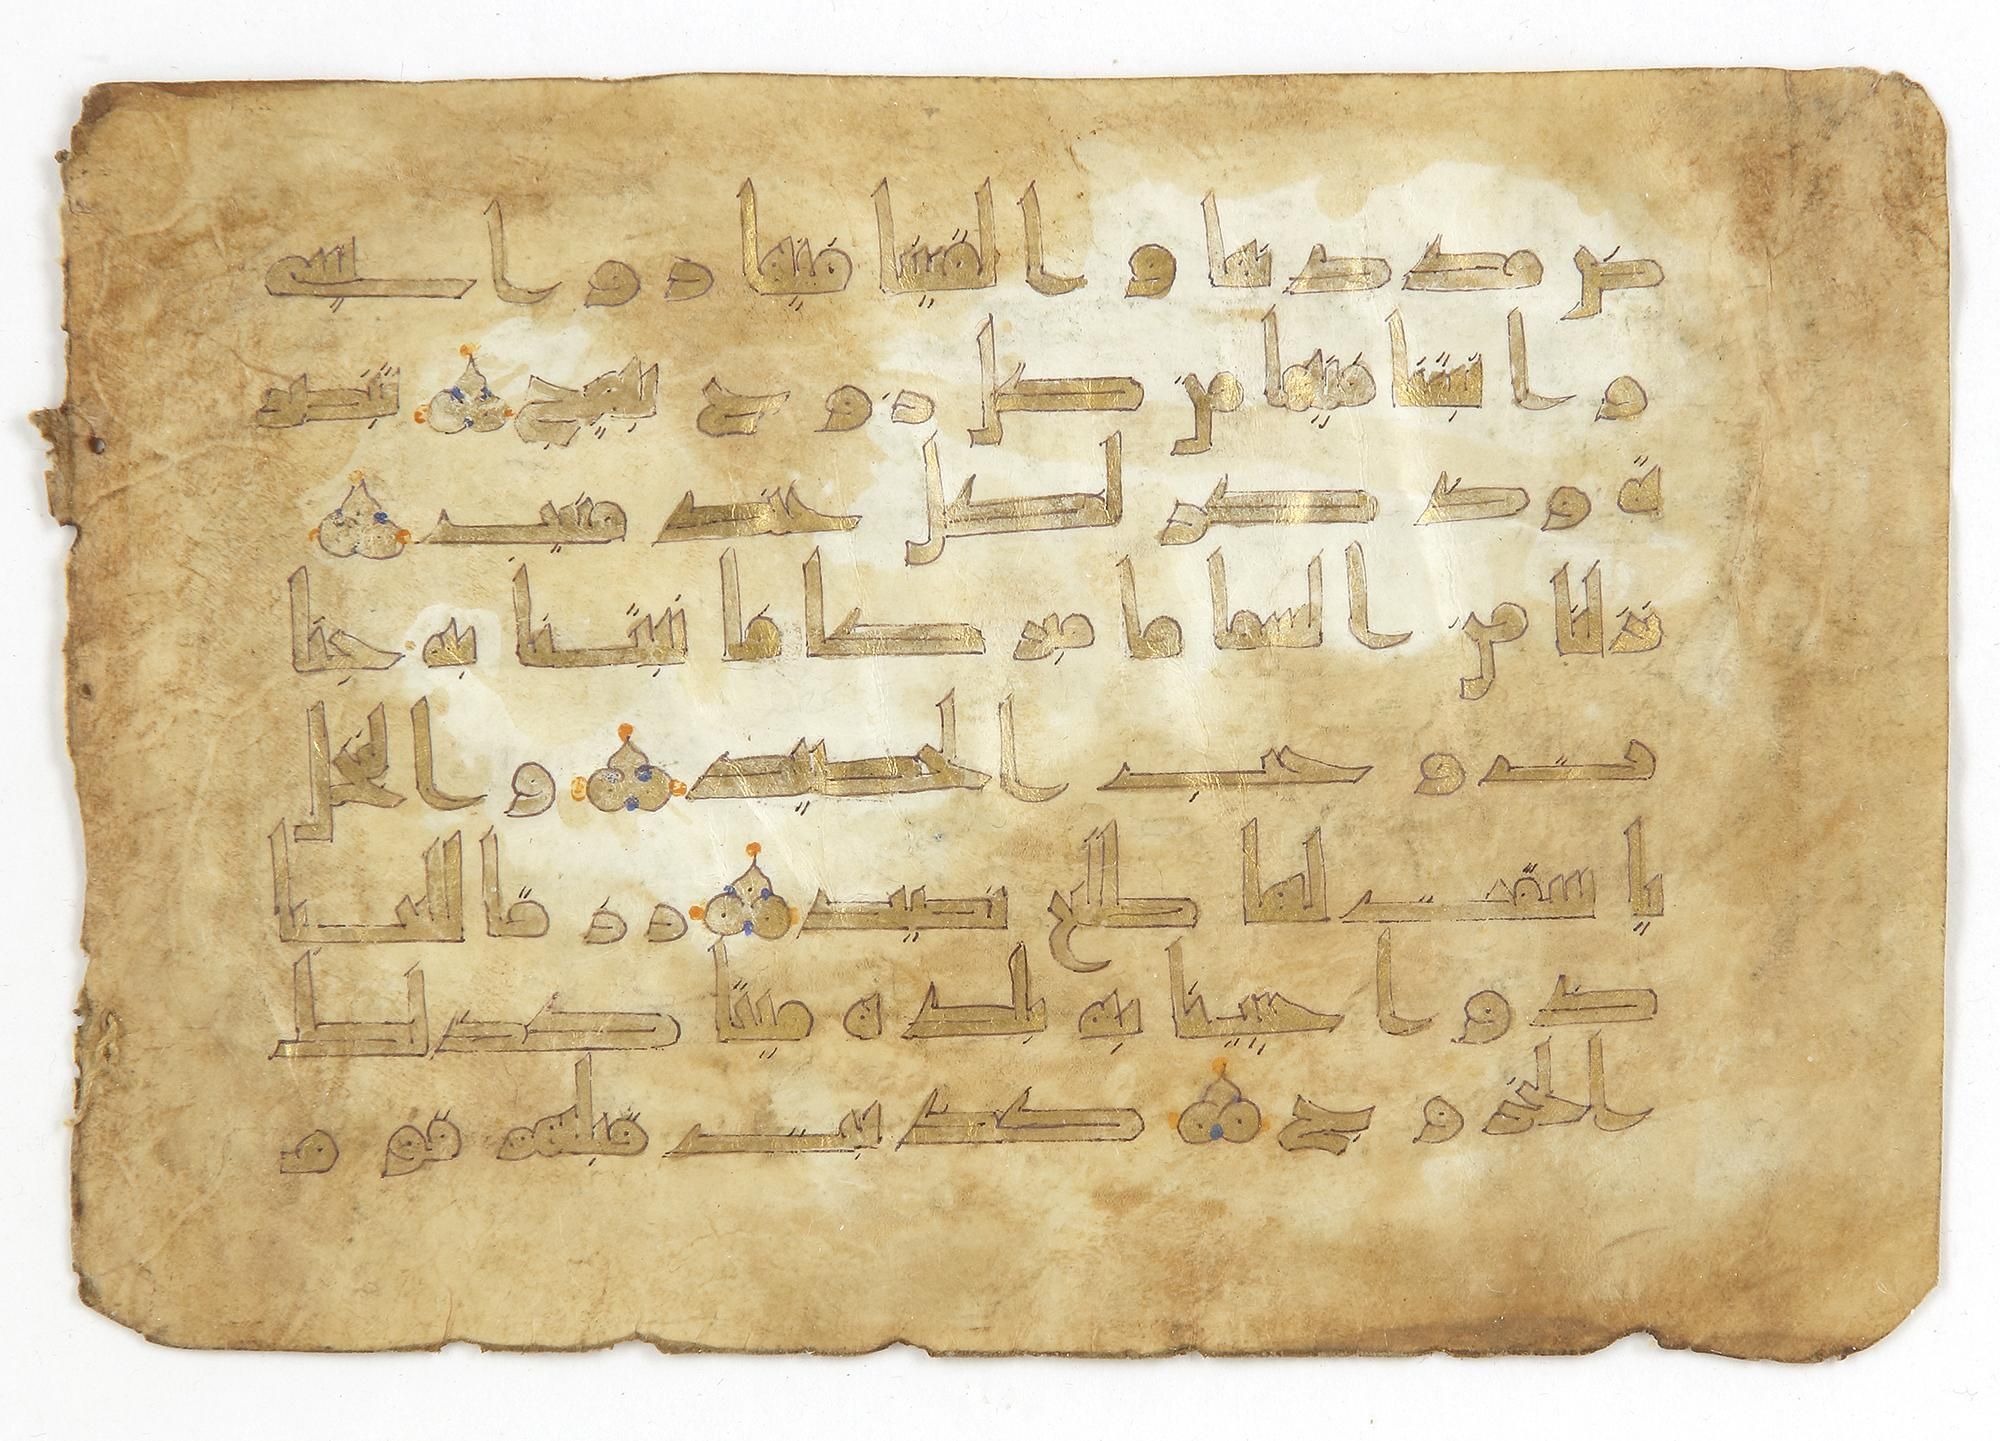 ض مددنها والقينا فيها رواسي
وانبتنا فيها من كل زوج بهيج تبصر
ة وذكرى لكل عبد منيب
نزلنا من السما ما مبركا فانبتنا به جنا
ت وحب الحصيد والنخل
باسقت لها طلع نضيد رزقا للعبا
د واحيينا به بلدة ميتا كذلك
الخروج كذبت قبلهم قوم